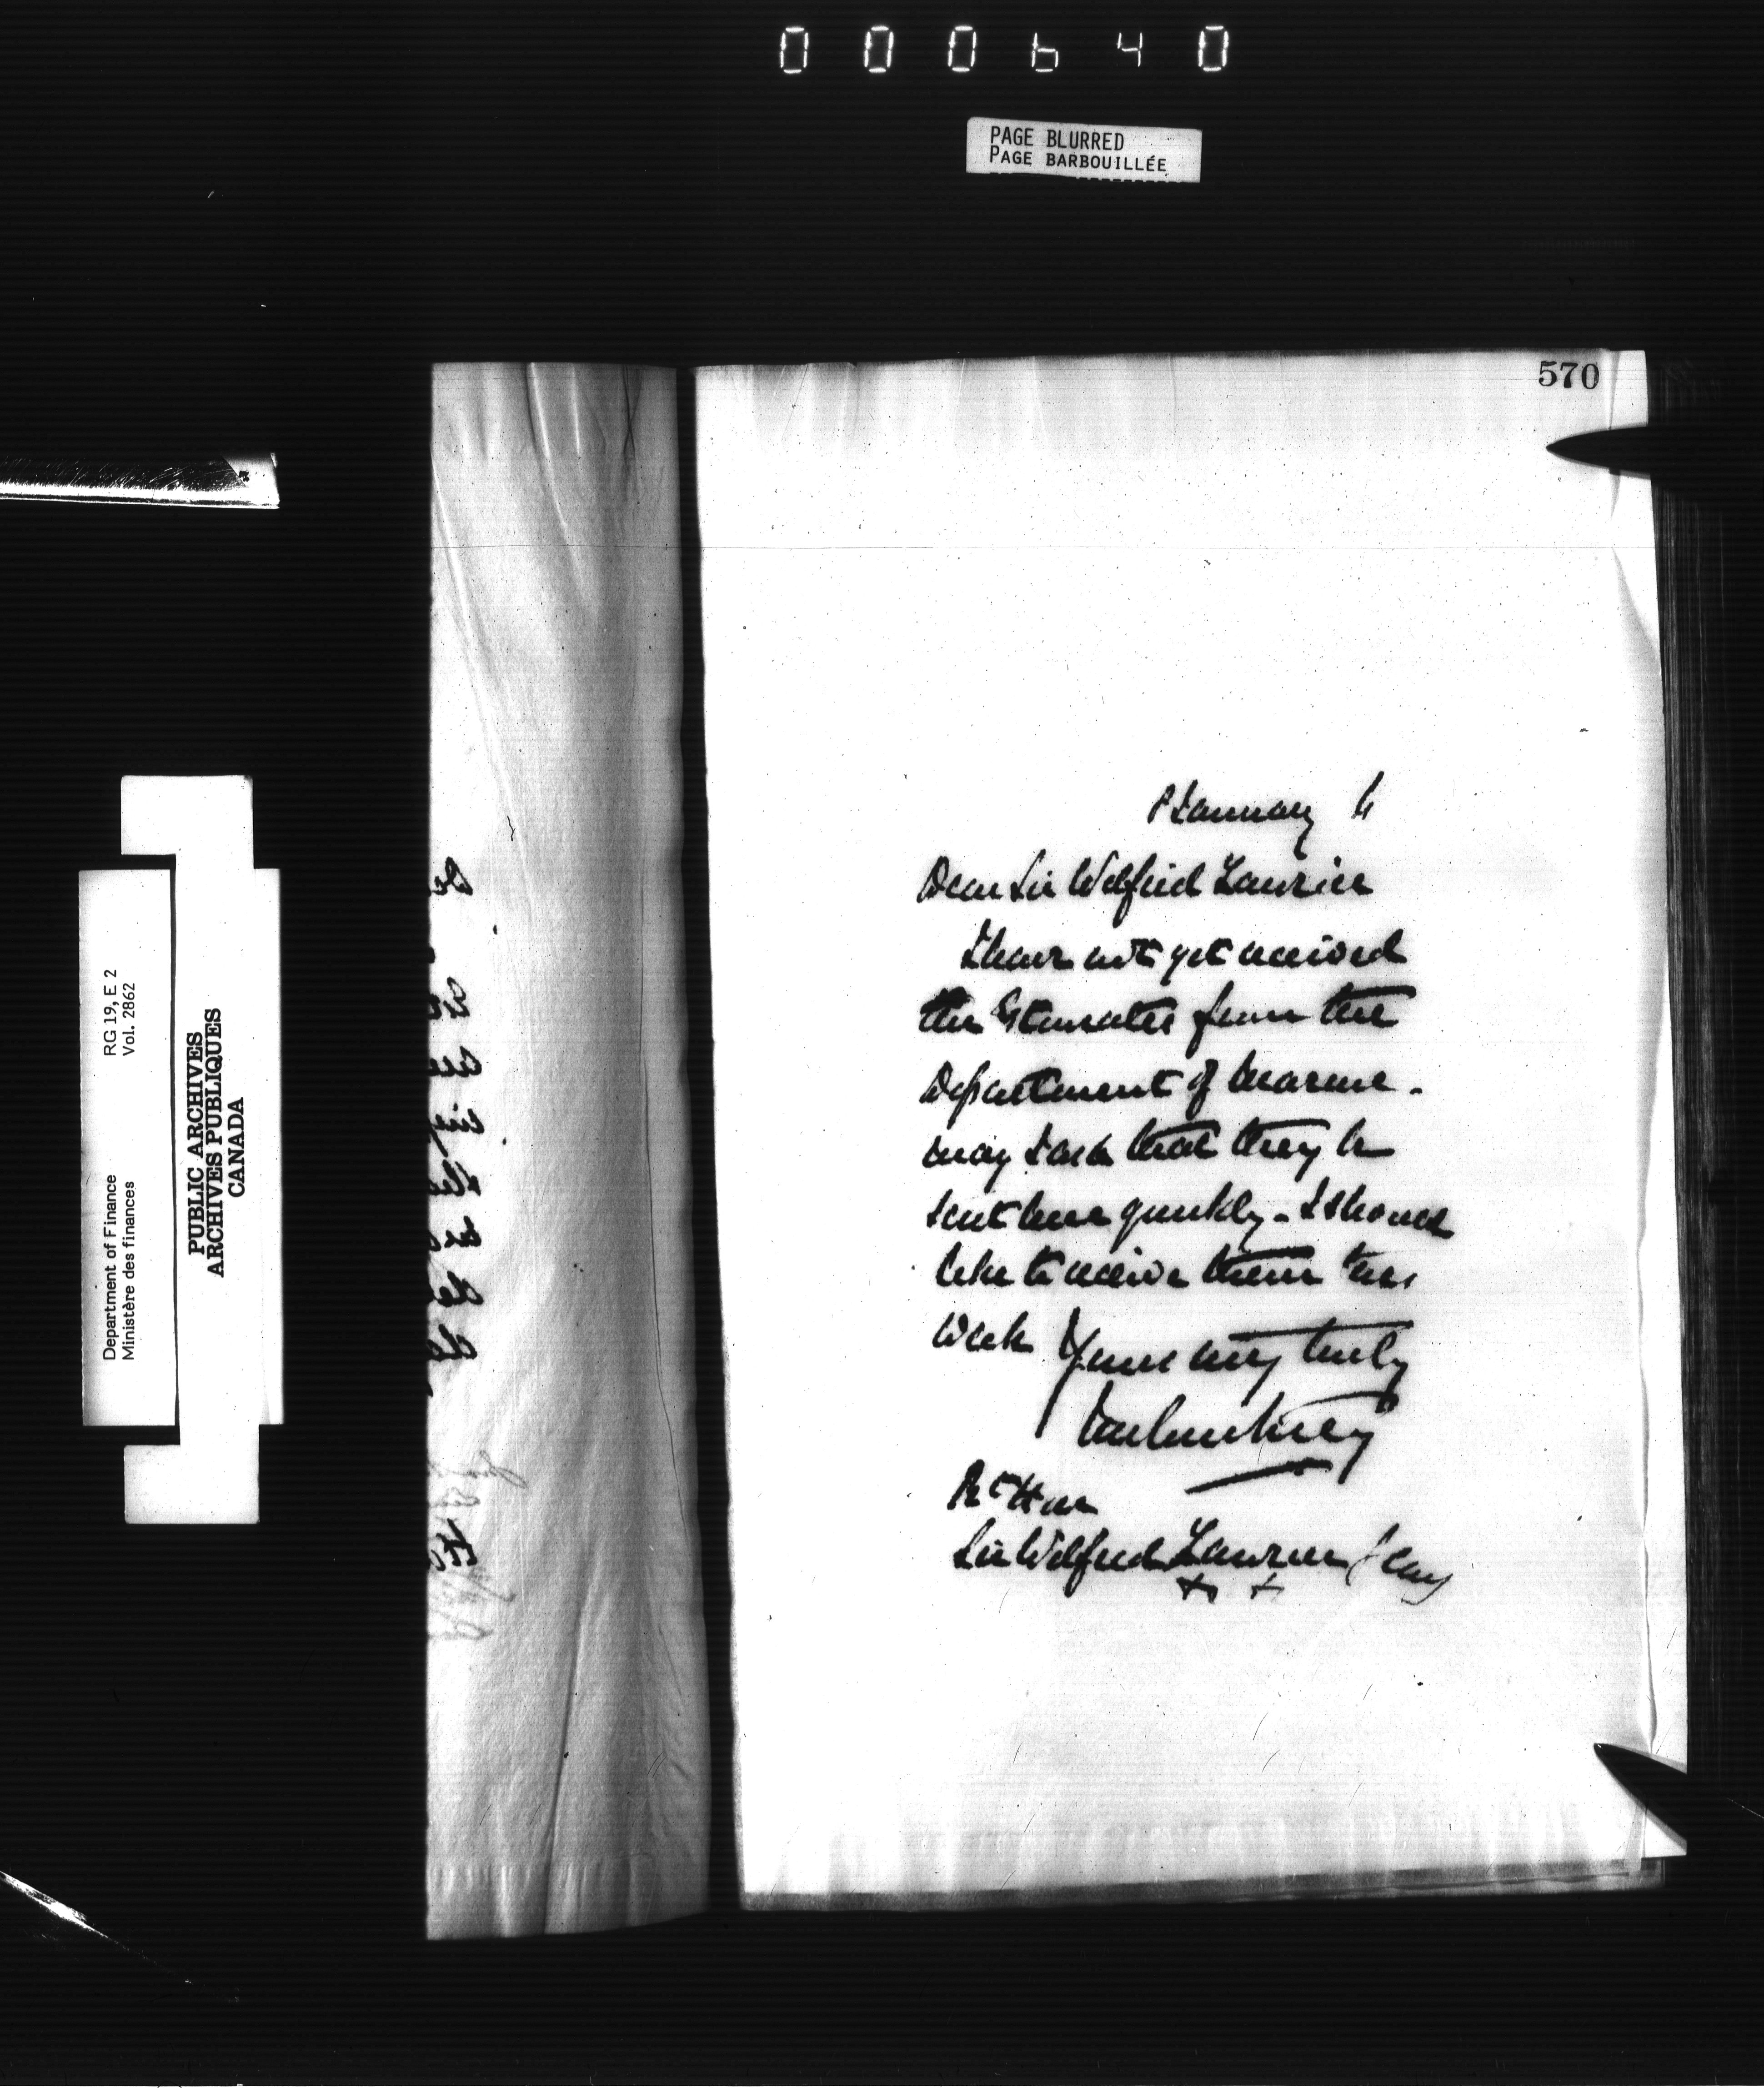 000640
PAGE BLURRED
PAGE BARBOUILLÉE
570
January
Dear Sir Wilfrid Laurier
I have not yet received
the Estimates from the
Department of Marine.
May I ask that they be
sent here quickly - I should
like to receive them this
week Yours very truly
Rt Hon
Sir Wilfrid Laurier
Department of Finance RG 19, E 2
Ministère des finances Vol. 2862
PUBLIC ARCHIVES
ARCHIVES PUBLIQUES
CANADA